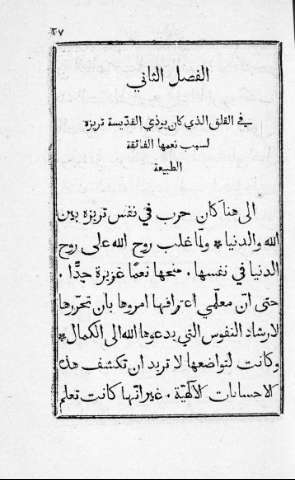 ٢٧
الفصل الثاني
في القلق الذي كان يوذي القديسة تريزه
لسبب نعمها الفائقة
الطبيعة
الى هنا كان حرب في نفس تريزه بين
الله والدنيا * ولما غلب روح الله على روح
الدنيا في نفسها . منحها نعمًا غزيرة جدًّا .
حتى انّ معلّمي اعترافها امروها بان تحررها
لارشاد النفوس التي يدعوها الله الى الكمال *
وكانت لتواضعها لا تريد ان تكشف هذه
الاحسانات الالهيّة . غير انّها كانت تعلم